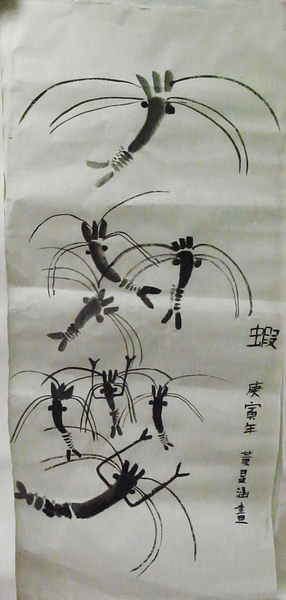 蝦
庚寅年 黃昱涵畫